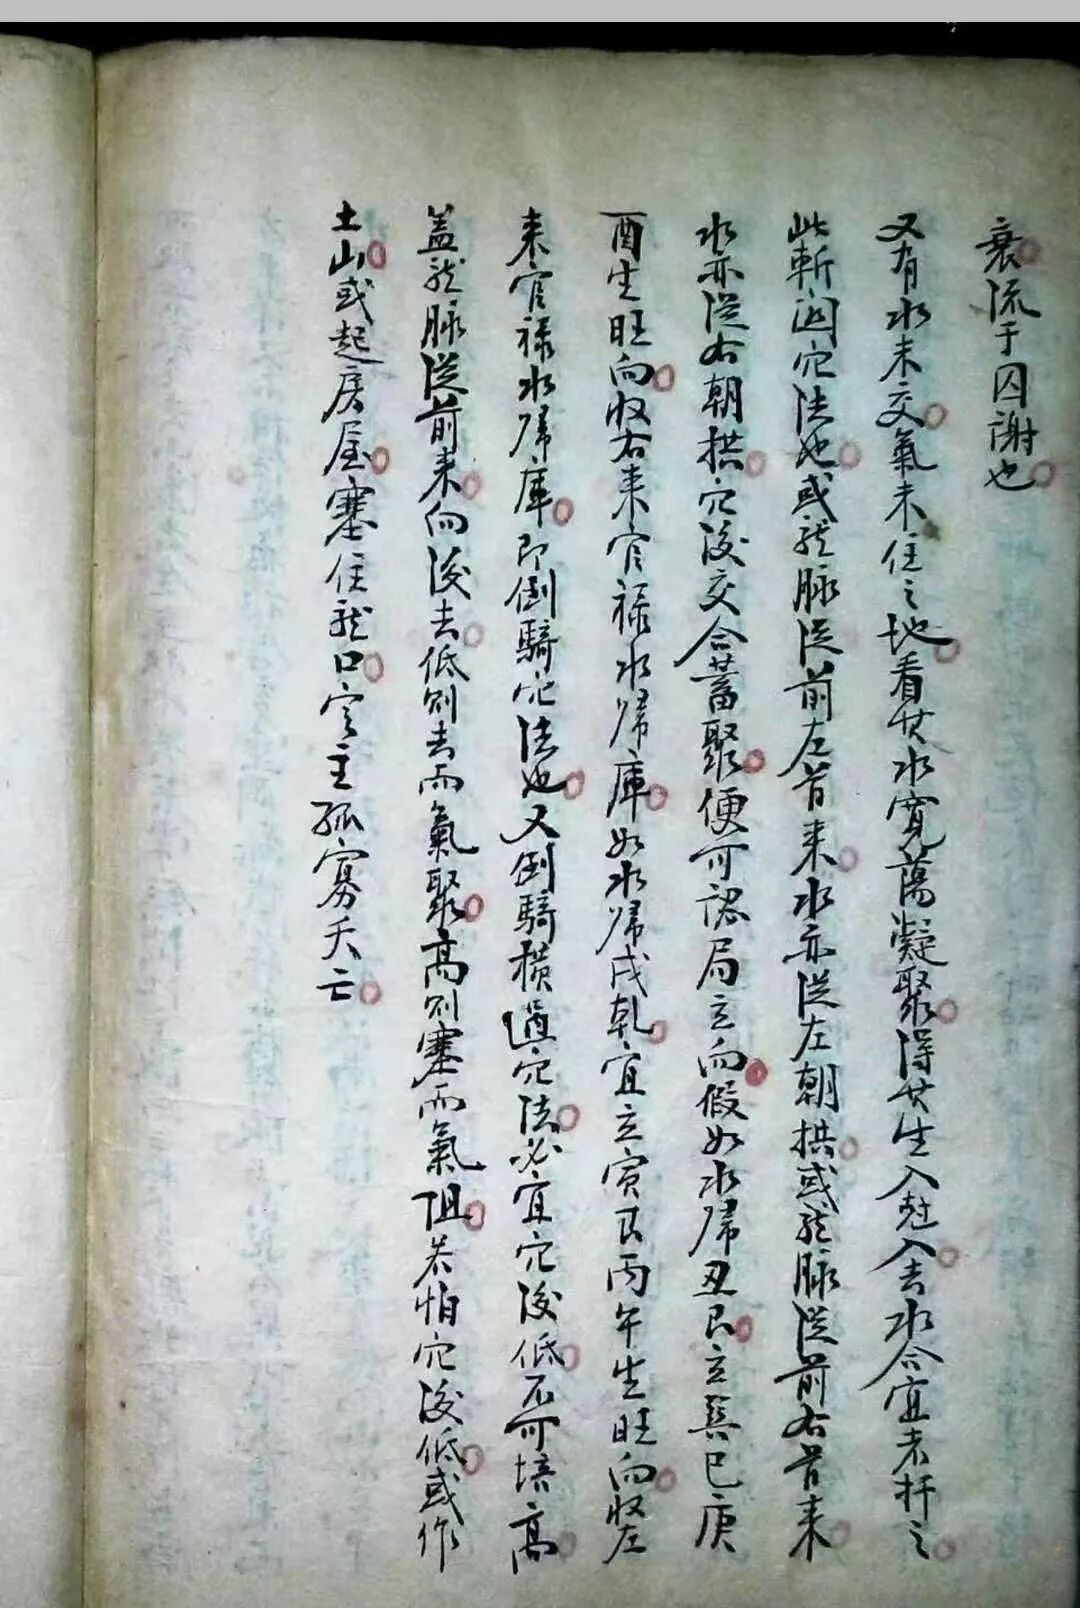 衰流于囚謝也
又有水未交氣未住之地看其水寬蕩凝聚得其生入尅入去水合宜者扦之
此斬関穴法也或龍脉從前左首来水亦從左朝拱或龍脉從前右首来
水亦從右朝拱穴後交合蓄聚便可認局立向假如水歸丑艮立巽巳庚
酉生旺向收右来官禄水歸庫如水歸戌乾宜立寅艮丙午生旺向收左
来官禄水歸庫即倒騎穴法也又倒騎横過穴法必宜穴後低不可培高
盖龍脉從前来向後去低則去而氣聚高則塞而氣阻若怕穴後低或作
土山或起房屋塞住龍口定主孤寡夭亡